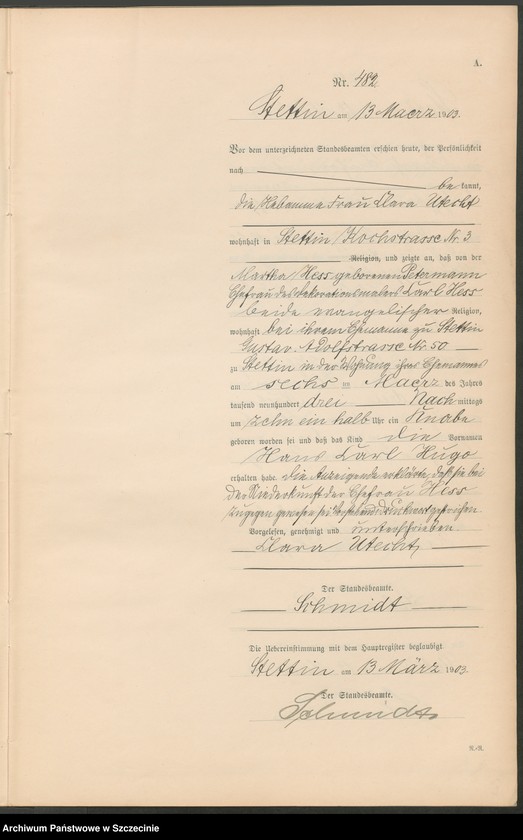 A.
Nr. 482.
Stettin am 13 Maerz 1903.
Vor dem unterzeichneten Standesbeamten erschien heute, der Persönlichkeit
nach
be kannt,
die Hebamme Frau Clara Utecht
wohnhaft in Stettin Kochstrasse Nr. 3
Religion, und zeigte an, daß von der
Martha Hess geborenen Petermann
Ehefrau des Dekorationsmalers Carl Hess
beide evangelischer Religion,
wohnhaft bei ihrem Ehemanne zu Stettin
Gustav-Adolfstrasse Nr. 50
zu Stettin in der Wohnung ihres Ehemannes
am sechs im Maerz des Jahres
tausend neunhundert drei Nach mittags
um zehn ein halb Uhr ein Knabe
geboren worden sei und daß das Kind die Vornamen
Hans Carl Hugo
erhalten habe. die Anzeigende erklärte, daß sie bei
der Niederkunft der Ehefrau Hess
zugegen gewesen sei. Vorstehend Druckwort gestrichen
Vorgelesen, genehmigt und unterschrieben
Clara Utecht
Der Standesbeamte.
Schmidt
Die Uebereinstimmung mit dem Hauptregister beglaubigt
Stettin am 13 März 1903.
Der Standesbeamte.
Schmidt
Archiwum Państwowe w Szczecinie